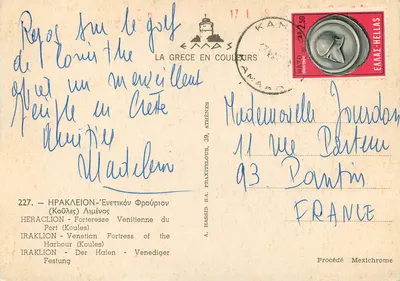 Repos sur le golf
de Corinthe
après un merveilleux
périple en Crète
Amitiés
Madeleine
ΕΛΛΑΣ
LA GRECE EN COULEURS
227. — ΗΡΑΚΛΕΙΟΝ-Ἐνετικόν Φρούριον
(Κούλες) Λιμένος
HERACLION - Forteresse Venitienne du
Port (Koules)
IRAKLION - Venetian Fortress of the
Harbour (Koules)
IRAKLION - Der Hafen - Venediger
Festung
A. HASSID O.A. PRAXITELOUS, 39, ATHÈNES
17
ΚΑΜ
2.50
ΕΛΛΑΣ-HELLAS
Mademoiselle Jourdan
11 rue Pasteur
93 Pantin
FRANCE
Procédé Mexichrome